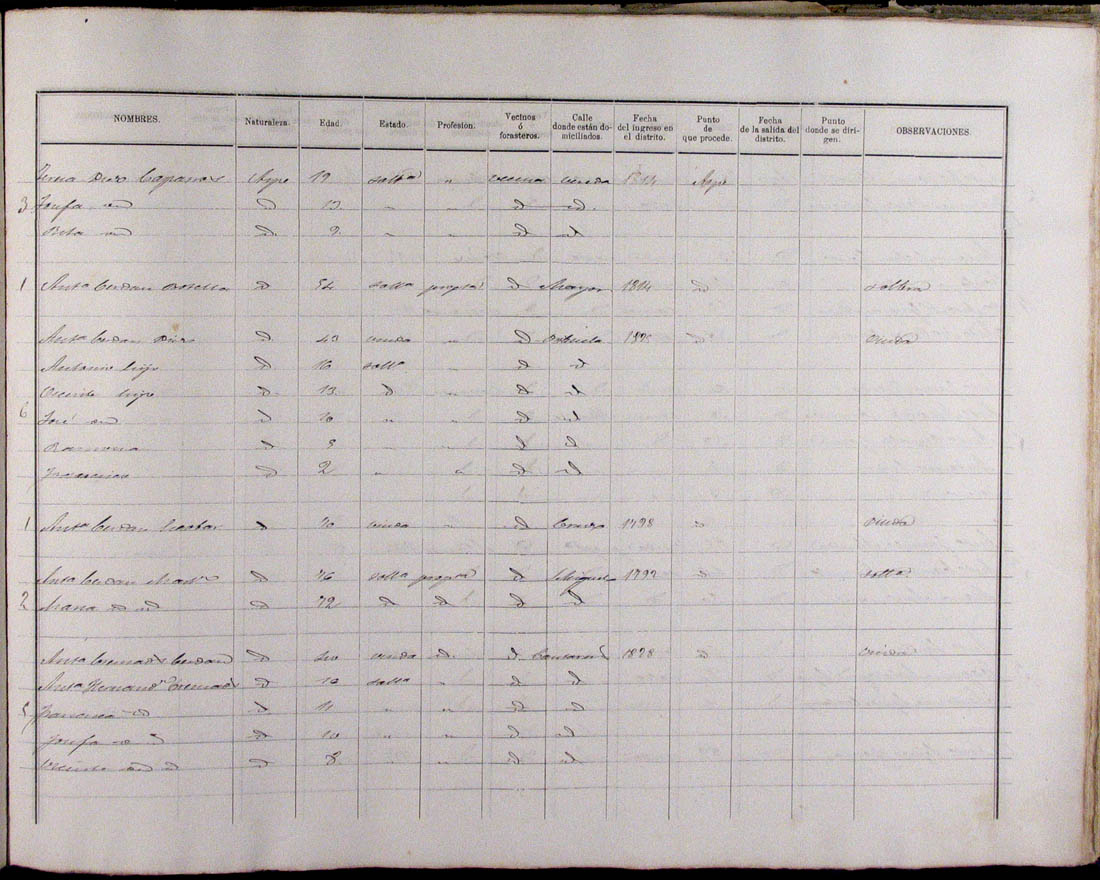 NOMBRES. Naturaleza. Edad. Estado. Profesión. Vecinos ó forasteros. Calle donde están domiciliados. Fecha del ingreso en el distrito. Punto de que procede. Fecha de la salida del distrito. Punto donde se dirigen. OBSERVACIONES.
Aspe 19 solt.ª " vecina 1814 Aspe
3 Josefa id 13 " " id id
Rita id id 9 " " id id
1 Ant.ª Cerdan Botella id 54 solt.ª prop.ª id Mayor 1814 id soltera
Ant.ª Cerdan id 43 viuda " id Orihuela 1825 id viuda
Antonio hijo id 16 solt.º id id
Vicente hijo id 13 id " id id
6 José id id 10 " " id id
Ramona id 5 " id id
Francisco id 2 " " id id
1 Ant.ª Cerdan id 70 viuda " id 1798 id viuda
Ant.ª Cerdan id 76 solt.ª prop.ª id 1792 id solt.ª
2 Maria id id id 72 id id id id
Ant.ª Cremades Cerdan id 40 viuda id id 1828 id viuda
Ant.ª Hernand.z Cremades id solt.ª " id id
5 Francisca id id 11 " " id id
Josefa id id id 10 " " id id
Vicente id id id 8 " " id id